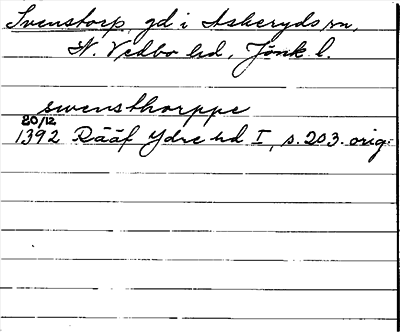 Svenstorp gd i Askeryds sn,
N. Vedbo hd, Jönk l.
swensthorppe
20/12
1392 Rääf Ydre hd I, s. 203. orig.